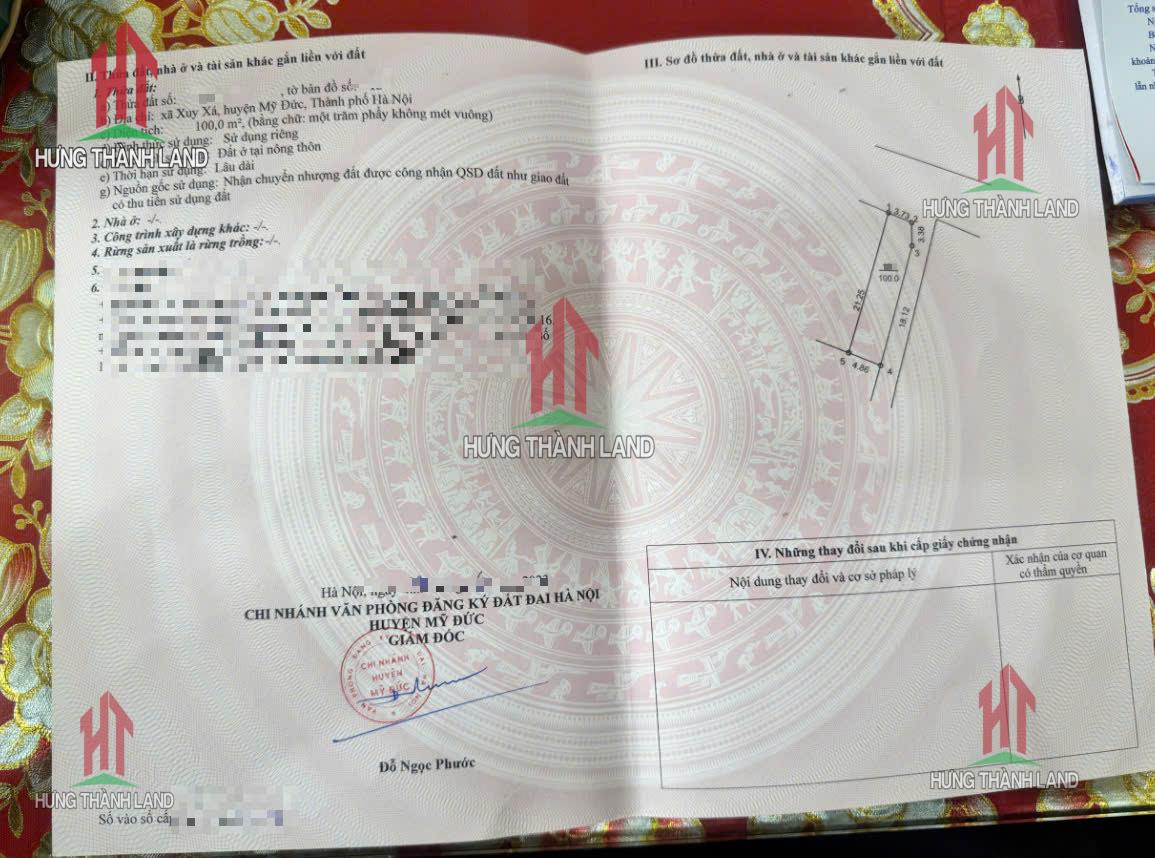 II. Thửa đất, nhà ở và tài sản khác gắn liền với đất
1. Thửa đất:
a) Thửa đất số: , tờ bản đồ số:
b) Địa chỉ: xã Xuy Xá, huyện Mỹ Đức, Thành phố Hà Nội
c) Diện tích: 100,0 m², (bằng chữ: một trăm phẩy không mét vuông)
d) Hình thức sử dụng: Sử dụng riêng
Đất ở tại nông thôn
e) Thời hạn sử dụng: Lâu dài
g) Nguồn gốc sử dụng: Nhận chuyển nhượng đất được công nhận QSD đất như giao đất
có thu tiền sử dụng đất
2. Nhà ở: -/-.
3. Công trình xây dựng khác: -/-.
4. Rừng sản xuất là rừng trồng: -/-.
5.
6.
Hà Nội, ngày
CHI NHÁNH VĂN PHÒNG ĐĂNG KÝ ĐẤT ĐAI HÀ NỘI
HUYỆN MỸ ĐỨC
GIÁM ĐỐC
CHI NHÁNH
HUYỆN
MỸ ĐỨC
Đỗ Ngọc Phước
Số vào sổ cấp
III. Sơ đồ thửa đất, nhà ở và tài sản khác gắn liền với đất
3.73
2
3.38
3
100.0
21.25
18.12
5
4.86
4
IV. Những thay đổi sau khi cấp giấy chứng nhận
Nội dung thay đổi và cơ sở pháp lý
Xác nhận của cơ quan
có thẩm quyền
Tổng s
khoản
lẫn nh
HT
HƯNG THÀNH LAND
HT
HƯNG THÀNH LAND
HT
HƯNG THÀNH LAND
HT
HƯNG THÀNH LAND
HT
HƯNG THÀNH LAND